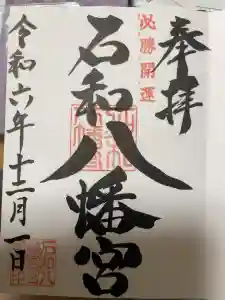 奉拝
必勝開運
石和八幡宮
令和六年十二月一日